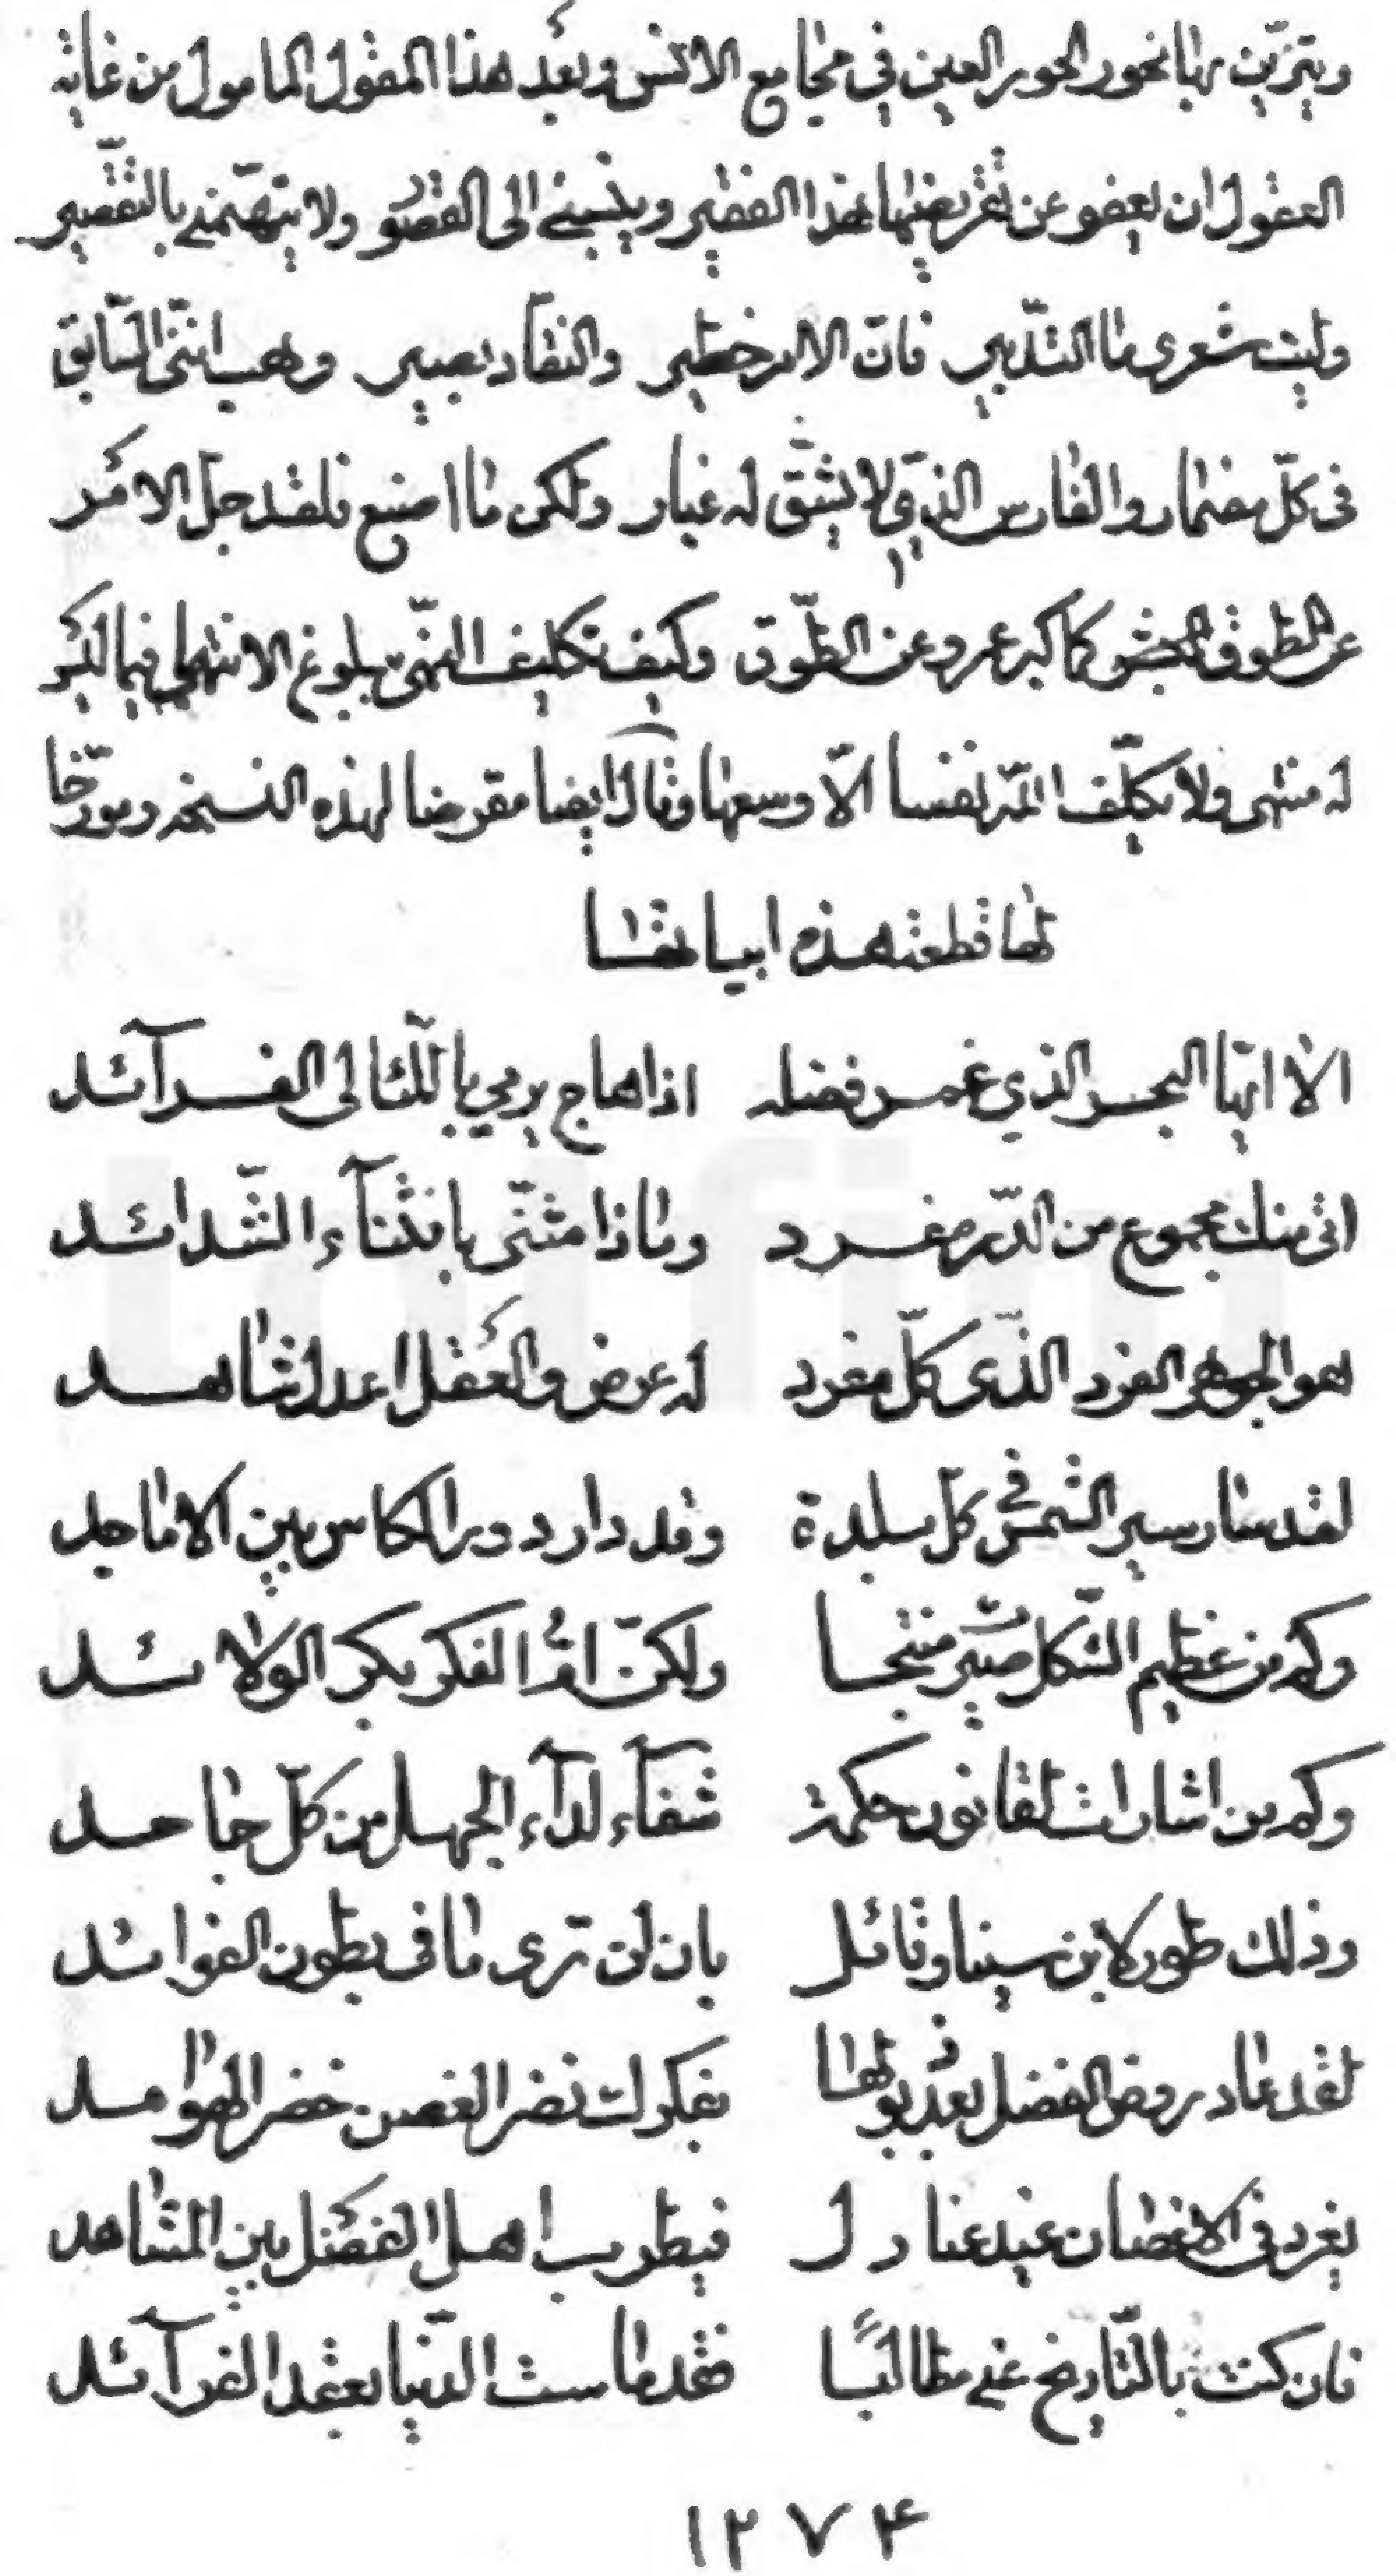 ويتزين بها نحور الحور العين في مجامع الانس وبعد هذا المقول المامول من غاية
العقول ان يعفو عن تقريضها هذا الفقير وينسبني الى القصور ولا يتهمني بالتقصير
وليت شعرى ما التدبير فان الامر خطير والنقاد بصير وهب انني السابق
فى كلّ مضمار والفارس الذي لا يشقّ له غبار ولكن ما اصنع فلقد جلّ الامر
عن الطوق كما كبر عمرو عن الطّوق وكيف تكليف ببلوغ الانتهاء فيما ليس
له منتهى ولا يكلّف اللّه نفسا الّا وسعها وقال ايضا مقرضا لهذه النسخه ومورّخا
لها قطعة هذه ابياتها
الا ايّها البحر الذي غمر فضله اذا هاج يرمي باللّئالى الفرآئد
اتى منك مجموع من الدّر مفرد وماذا مثنّى بانثنآء الشّدائد
هو الجوهر الفرد الذّى كلّ مفرد له عرض والعقل اعدل شاهد
لقد سار سير الشمس فى كل بلدة وقد دار دور الكاس بين الاماجد
وكم من عظيم الشّكل صيّر منتجا ولكنّ امّ الفكر بكر الولائد
وكم من اشارات لقانون حكمة شفآء لدآء الجهل من كلّ جاحد
وذلك طور لابن سينا وقائل بان لن ترى ما فى بطون الفوائد
لقد عاد روض الفضل بعد ذبولها بفكرك نضر الغصن خضر الهوامد
يغرد فى الاغصان عند عنادل فيطرب اهل الفضل بين المشاهد
فان كنت بالتّاريخ عنى مطالبًا فقد ماست الدّنيا بعقد الفرآئد
۱۲۷۴